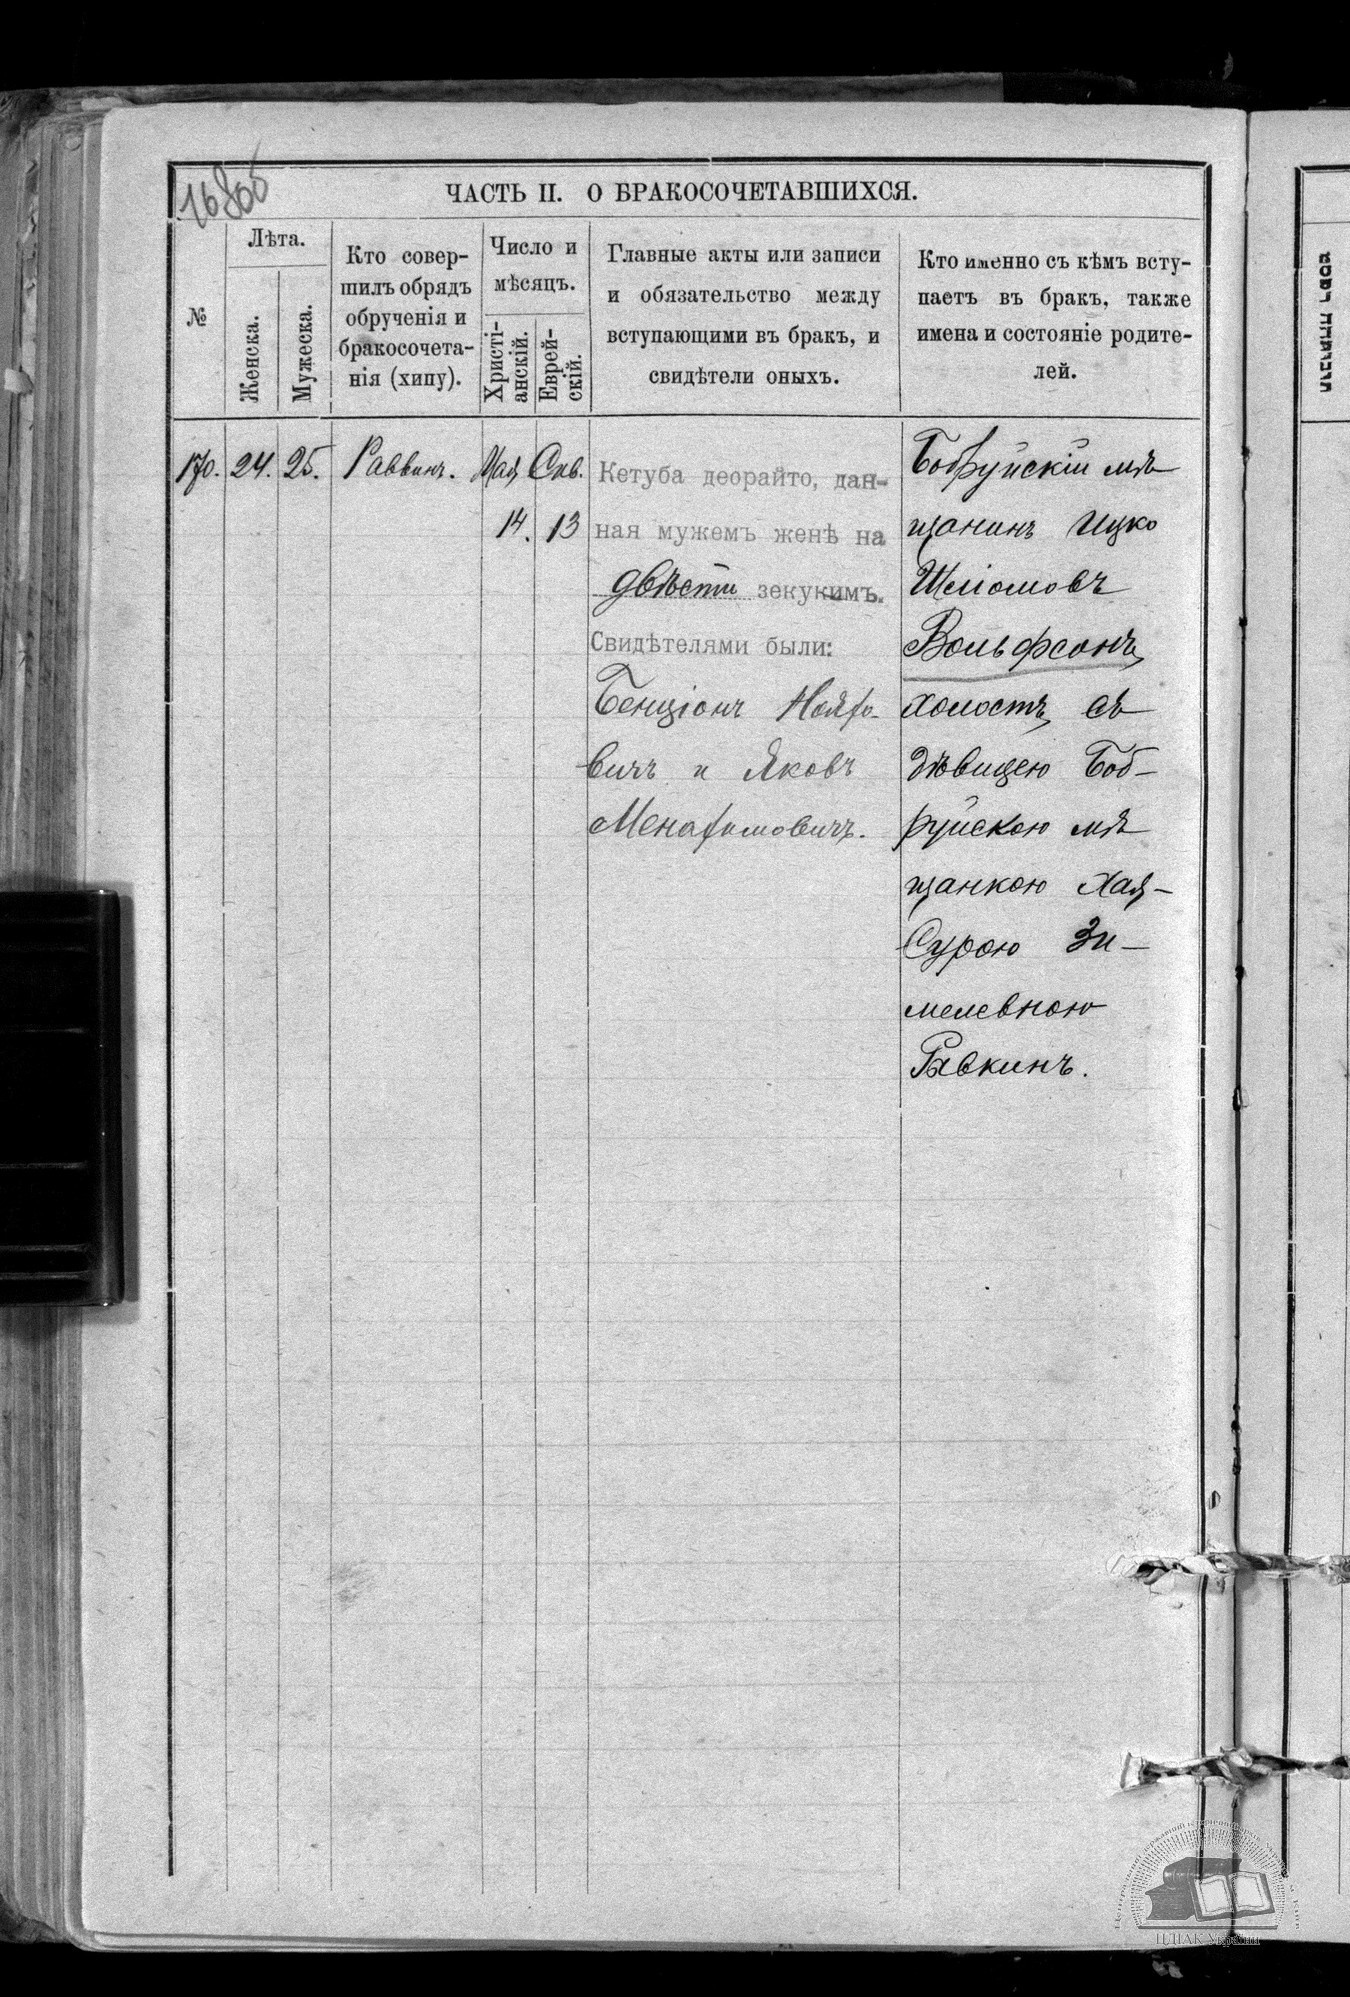 ЧАСТЬ II. О БРАКОСОЧЕТАВШИХСЯ.
№
Лѣта.
Женска.
Мужеска.
Кто совер-
шилъ обрядъ
обрученія и
бракосочета-
нія (хипу).
Число и
мѣсяцъ.
Христі-
анскій.
Еврей-
скій.
Главные акты или записи
и обязательство между
вступающими въ бракъ, и
свидѣтели оныхъ.
Кто именно съ кѣмъ всту-
паетъ въ бракъ, также
имена и состояніе родите-
лей.
170.
24.
25.
Раввинъ.
Мая
14.
Сив.
13
Кетуба деорайто, дан-
ная мужемъ женѣ на
двѣсти зекукимъ.
Свидѣтелями были:
Бенціонъ
вичъ и Яковъ
Бобруйскій мѣ
щанинъ Ицко
Шліомовъ
Вольфсонъ,
холостъ, съ
дѣвицею Боб-
руйскою мѣ
щанкою Хая-
Сурою Зи-
мелевною
Рявкинъ.
ЦДІАК України